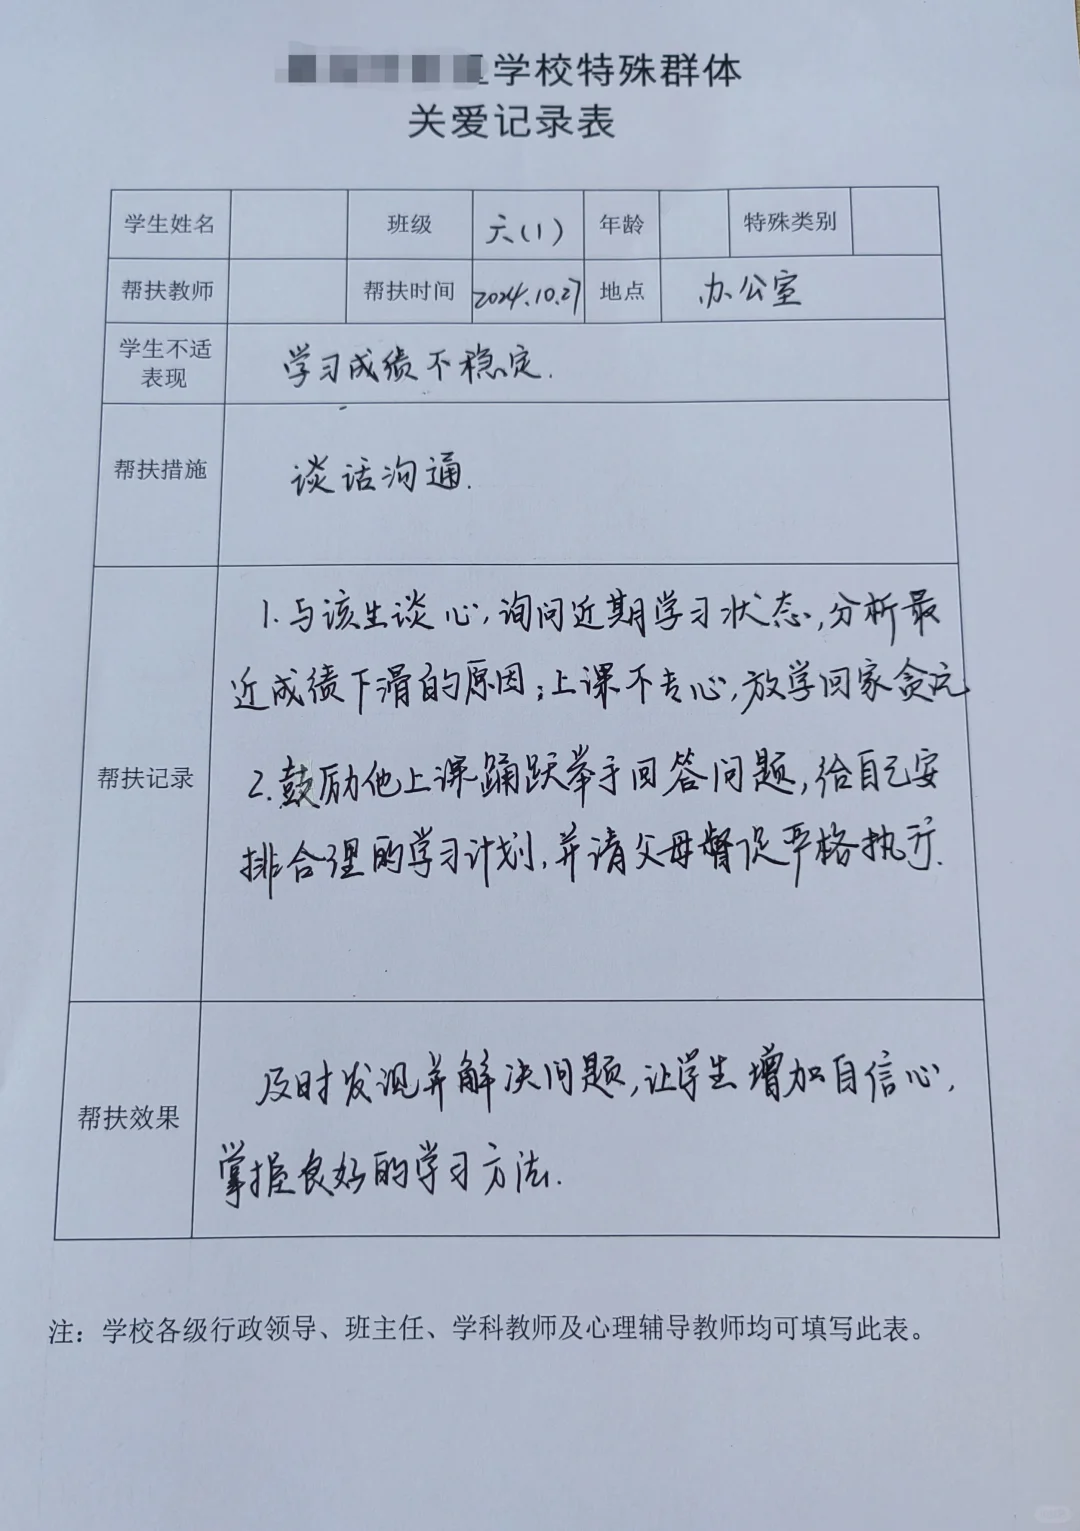 学校特殊群体
关爱记录表
学生姓名 班级 六(1) 年龄 特殊类别
帮扶教师 帮扶时间 2024.10.27 地点 办公室
学生不适
表现
学习成绩不稳定.
帮扶措施
谈话沟通.
帮扶记录
1.与该生谈心,询问近期学习状态,分析最
近成绩下滑的原因;上课不专心,放学回家贪玩
2.鼓励他上课踊跃举手回答问题,给自己安
排合理的学习计划,并请父母督促严格执行.
帮扶效果
及时发现并解决问题,让学生增加自信心,
掌握良好的学习方法.
注：学校各级行政领导、班主任、学科教师及心理辅导教师均可填写此表。